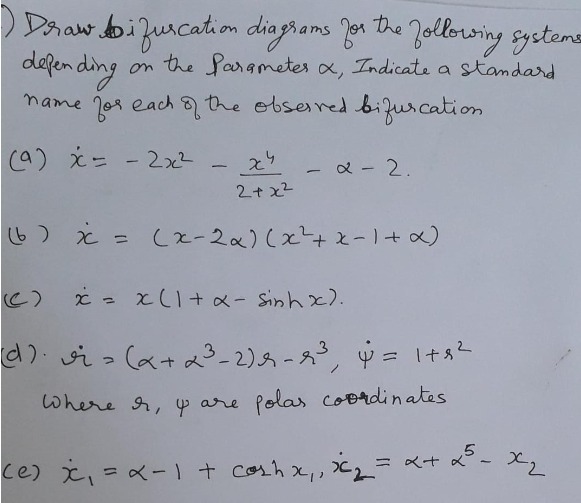 ) Draw bifurcation diagrams for the following systems
depending on the Parameter α, Indicate a standard
name for each of the observed bifurcation
(a) ẋ = - 2x² - x⁴/(2+x²) - α - 2.
(b) ẋ = (x-2α)(x²+x-1+α)
(c) ẋ = x(1+α- sinh x).
(d). ṙ = (α+α³-2)r - r³, ψ̇ = 1+r²
where r, ψ are polar coordinates
(e) ẋ₁ = α-1 + cosh x₁, ẋ₂ = α+ α⁵- x₂